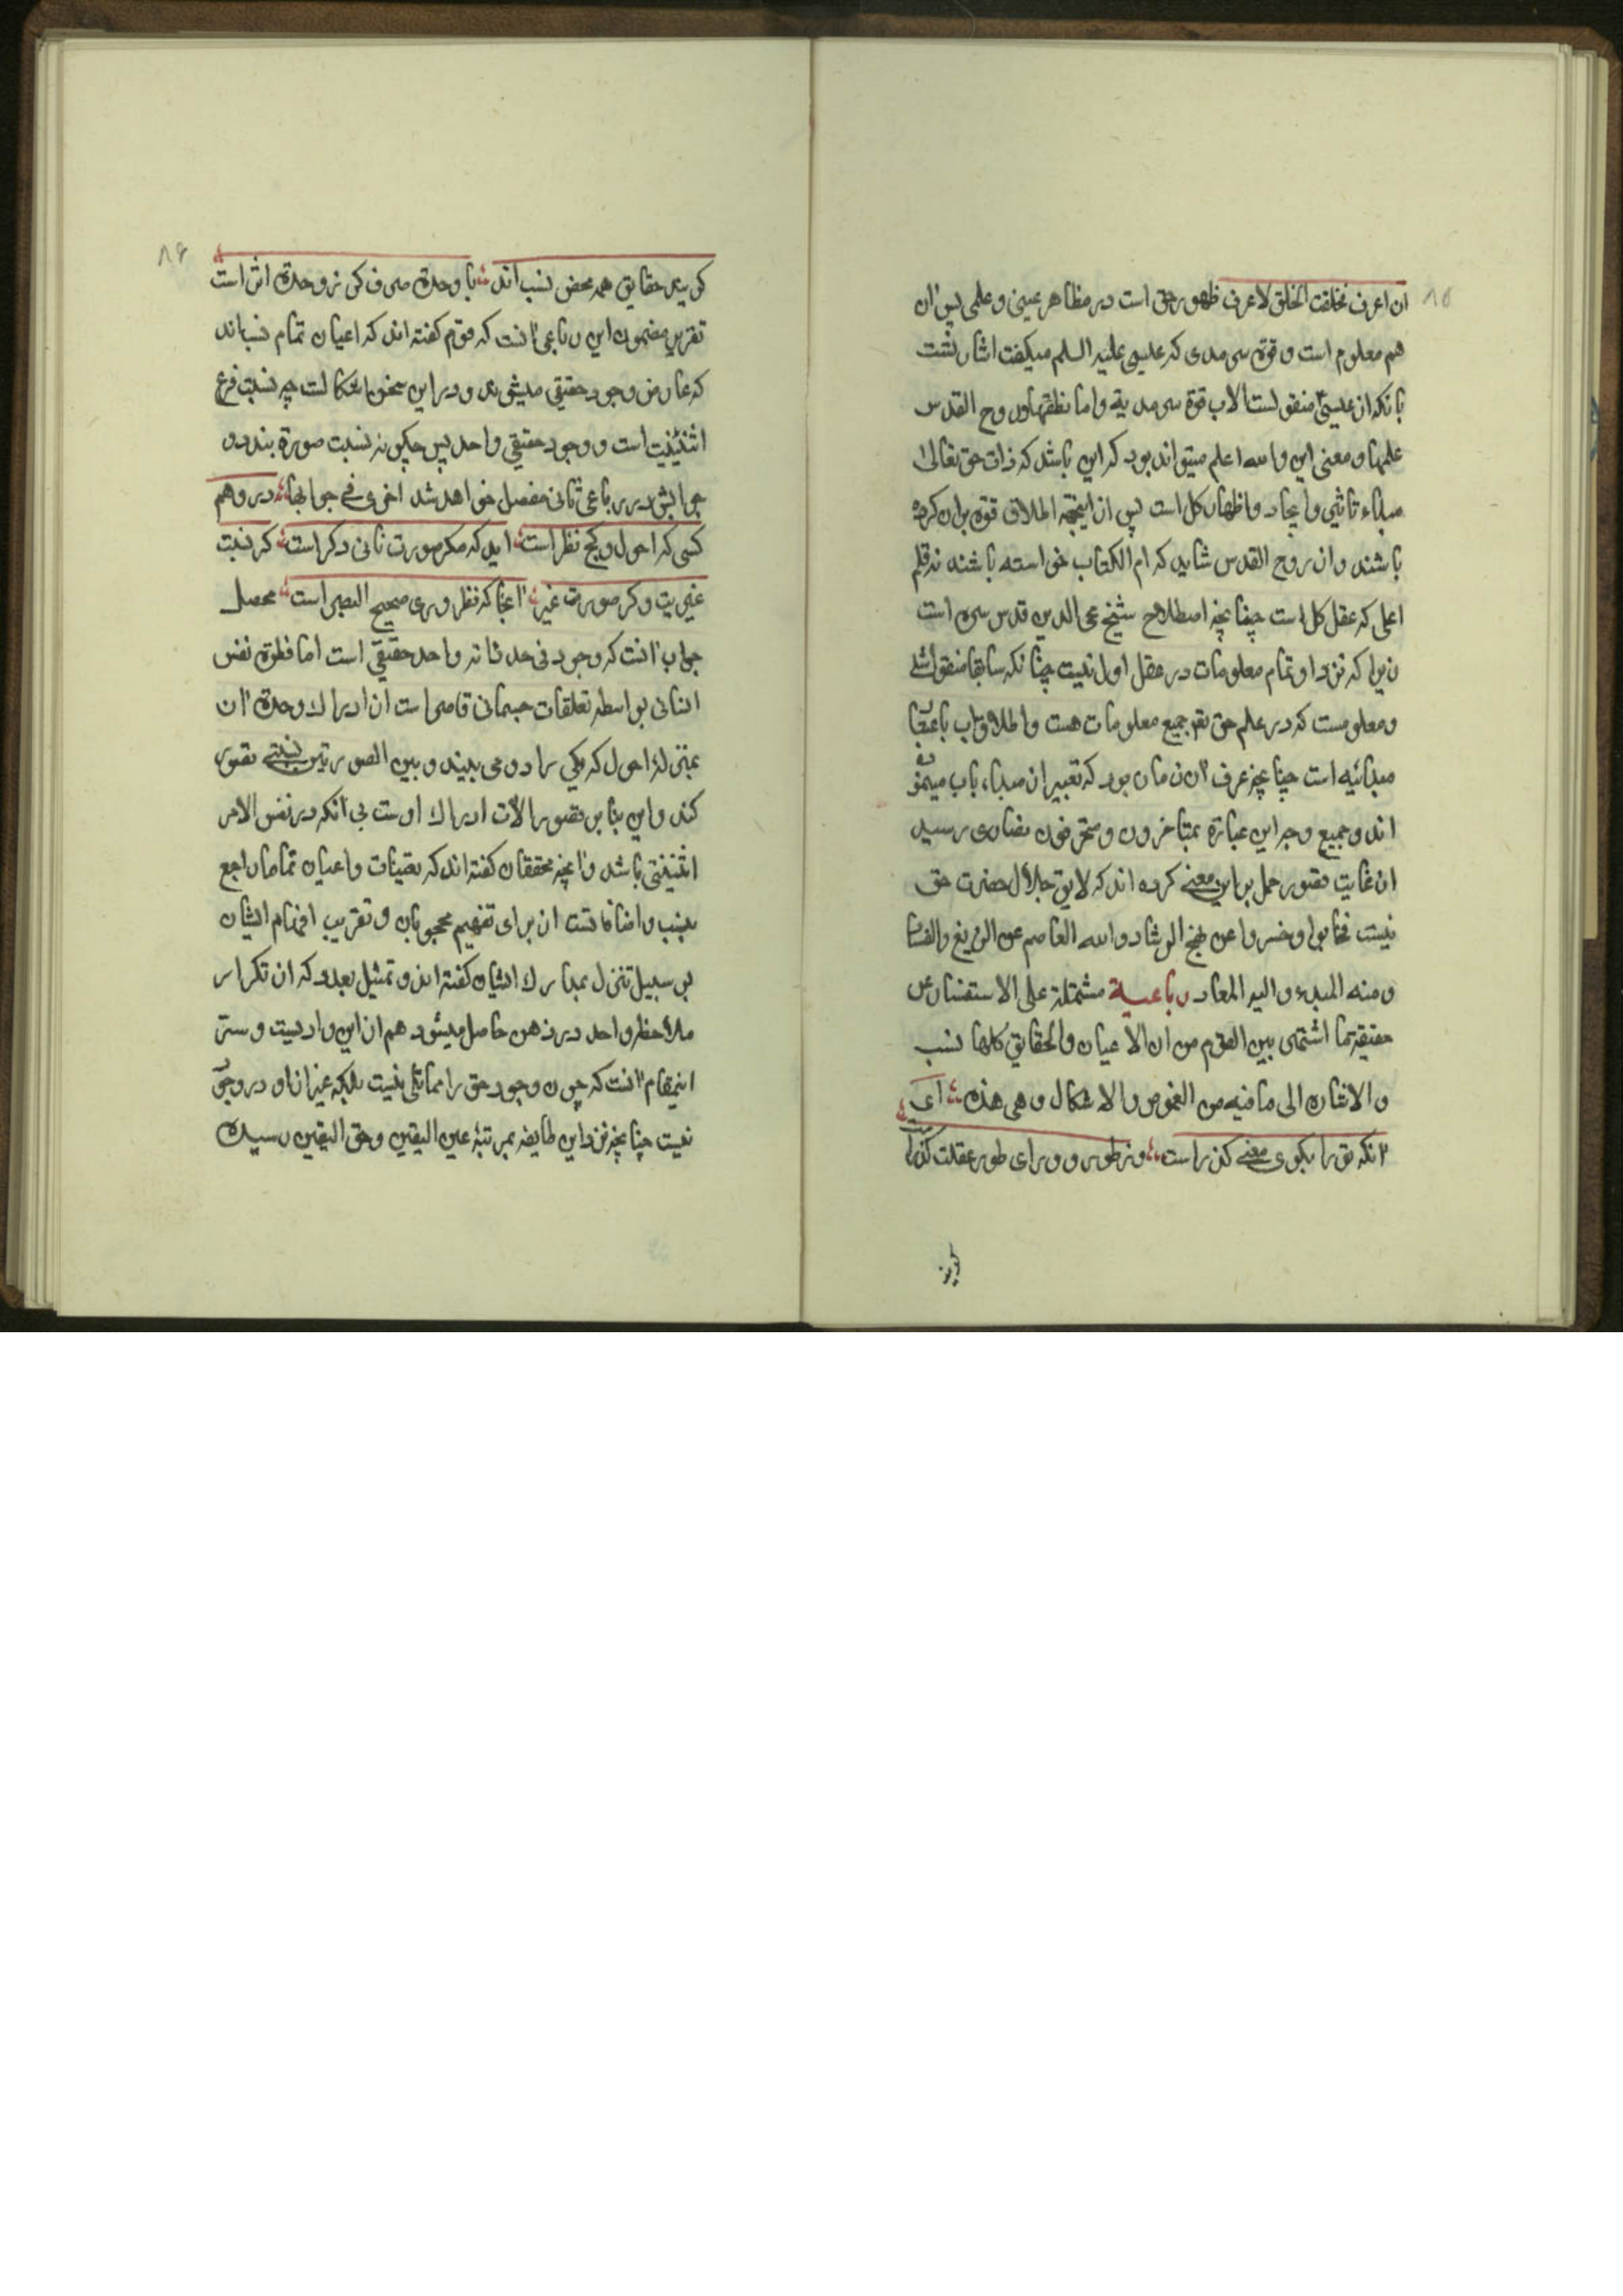 ٨٥
ان اعرف فخلقت الخلق لاعرف ظهور حق است در مظاهر عینی و علمی پس ازان
هم معلوم است و قوة سرمدی که عیسی علیه السلم میکفت اشارتست
بانکه از عیسی منقولست الاب قوة سرمدیة واما نطقها و روح القدس
علمها و معنی این والله اعلم میتواند بود که این باشد که ذات حق تعالی
مبداء تاثیر و ایجاد و اظهار کل است پس از اینجهة اطلاق قوة بران کرده
باشند و از روح القدس شاید که ام الکتاب خواسته باشند نه قلم
اعلی که عقل کل است چنانچه اصطلاح شیخ محی الدین قدس سره است
زیرا که نزد او تمام معلومات در عقل اول نیست چنانکه سابقا منقول شد
و معلومست که در علم حق تعالی جمیع معلومات هست و اطلاق اب باعتبار
مبدائیه است چنانچه عرف آن زمان بود که تعبیر از مبداء باب مینموده
اند و جمیع وجر این عبارة بمتاخرون و متحرفون نصاری رسید
از غایت قصور حمل براین معنی کرده اند که لایق جلال حضرت حق
نیست فخابوا و خسروا عن نهج الرشاد والله العاصم عن الزیغ والفساد
ومنه المبدء والیه المعاد رباعیة مشتملة علی الاستفسار عن
حقیقة ما اشتهر بین القوم من ان الاعیان والحقایق کلها نسب
والاشارة الی ما فیه من الغموض والاشکال و هی هذه ای
آنکه تو را بکوی معنی کذر است وز طور و ورای طور عقلت کذر است
کویند
٨٦
کویند حقایق همه محض نسب اند با وحدة صرف کز نزوحدة اثر است
تقریر مضمون این رباعی آنست که قوم کفته اند که اعیان تمام نسب اند
که عارض وجود حقیقی میشوند و دراین سخن اشکالست چه نسبت فرع
اثنینیت است و وجود حقیقی واحد پس چکونه نسبت صورة بندد و
جوابش در رباعی ثانی مفصل خواهد شد اخری فی جوابها در وهم
کسی که احول و کج نظر است اید که مکر صورت ثانی دکر است کر نسبت
غیریت و کر صورت غیر آنجا که نظر وری صحیح البصر است محصل
جواب آنست که وجود فی حد ذاته واحد حقیقی است اما فطرة نفس
انسانی بواسطه تعلقات جسمانی قاصر است از ادراک وحدة آن
بمنزلهٔ احول که یکی را دو می بیند و بین الصورتین نسبتی تصور
کند و این بنا بر قصور آلات ادراک اوست بی آنکه در نفس الامر
اثنینیتی باشد و آنچه محققان کفته اند که تعینات و اعیان تماما راجع
بنسب و اضافاتست از برای تفهیم محجوبان و تقریب افهام ایشان
بر سبیل تنزل بمدارک ایشان کفته اند و تمثیل بعدد که از تکرار
ملاحظه واحد در ذهن حاصل میشود هم از این وادیست و ستر
اینمقام آنست که چون وجود حق را مماثلی نیست بلکه غیر از او در وجود
نیست چنانچه نزد این طایفه بمرتبهٔ عین الیقین و حق الیقین رسیده